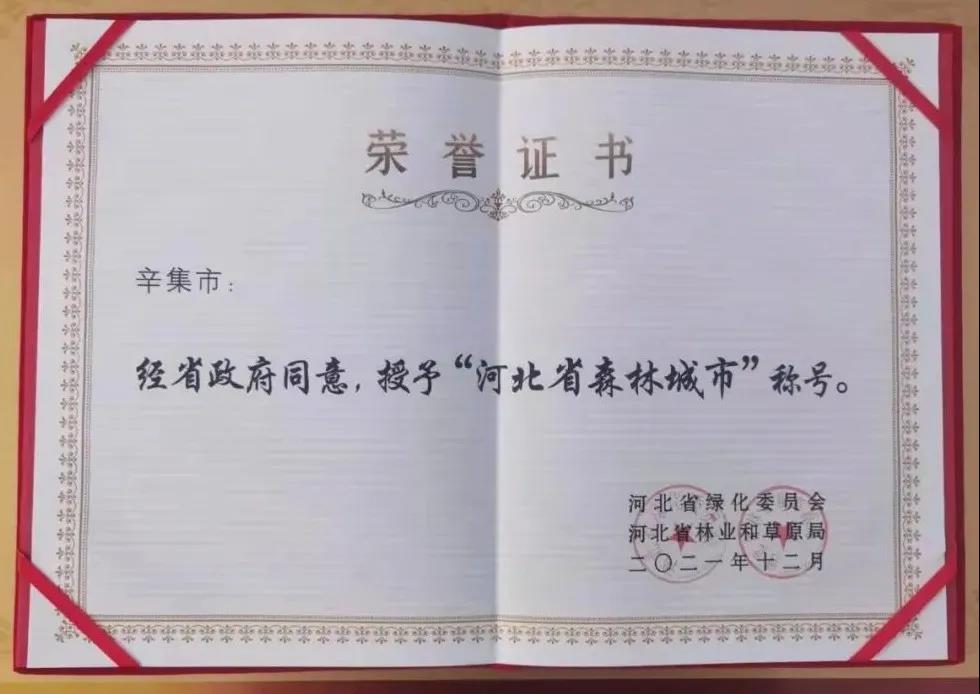 荣誉证书
辛集市：
经省政府同意，授予“河北省森林城市”称号。
河北省绿化委员会
河北省林业和草原局
二〇二一年十二月